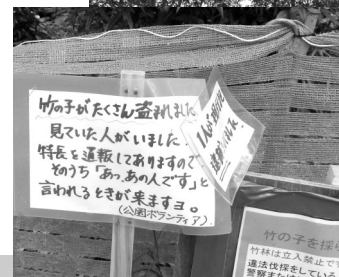 竹の子がたくさん盗まれました
見ていた人がいました!
特長を通報してありますので
そのうち「あっ、あの人です」と
言われるときが来ますヨ。
(公園ボランティア)
1人が
逮捕されました!
竹の子を採
竹林は立入禁止で
違法伐採をしている
警察また